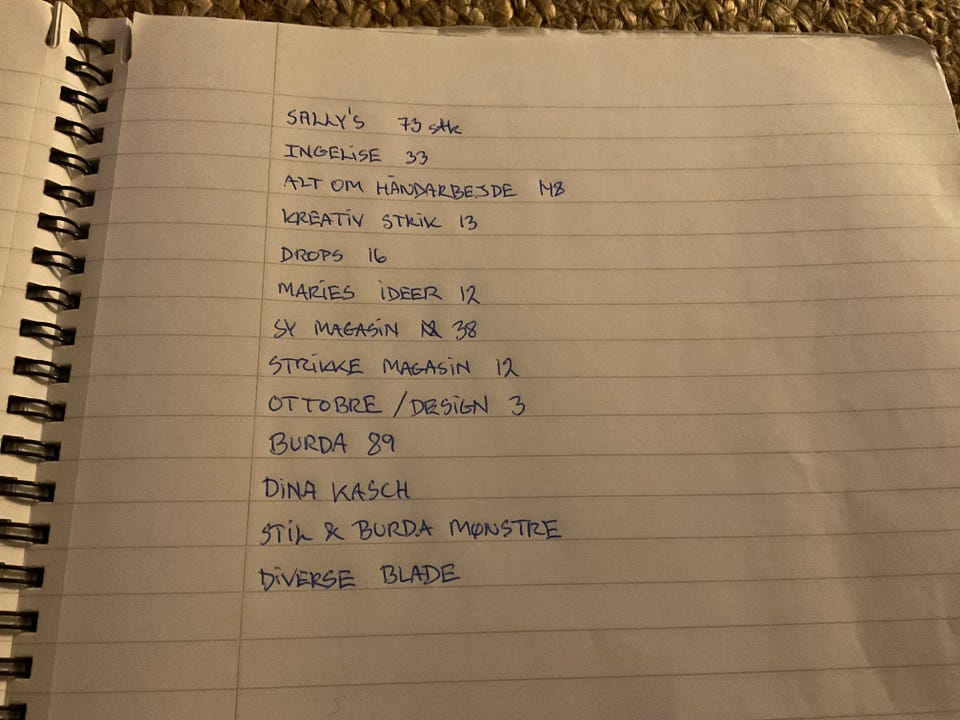 SALLY'S 73 stk
INGELISE 33
ALT OM HÅNDARBEJDE 148
KREATIV STRIK 13
DROPS 16
MARIES IDEER 12
SY MAGASIN 38
STRIKKE MAGASIN 12
OTTOBRE / DESIGN 3
BURDA 89
DINA KASCH
STIL & BURDA MØNSTRE
DIVERSE BLADE